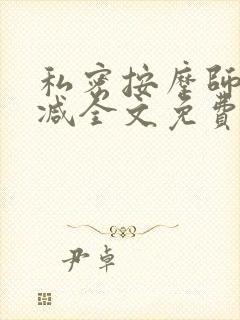 私密按摩師
减全文免費
尹卓